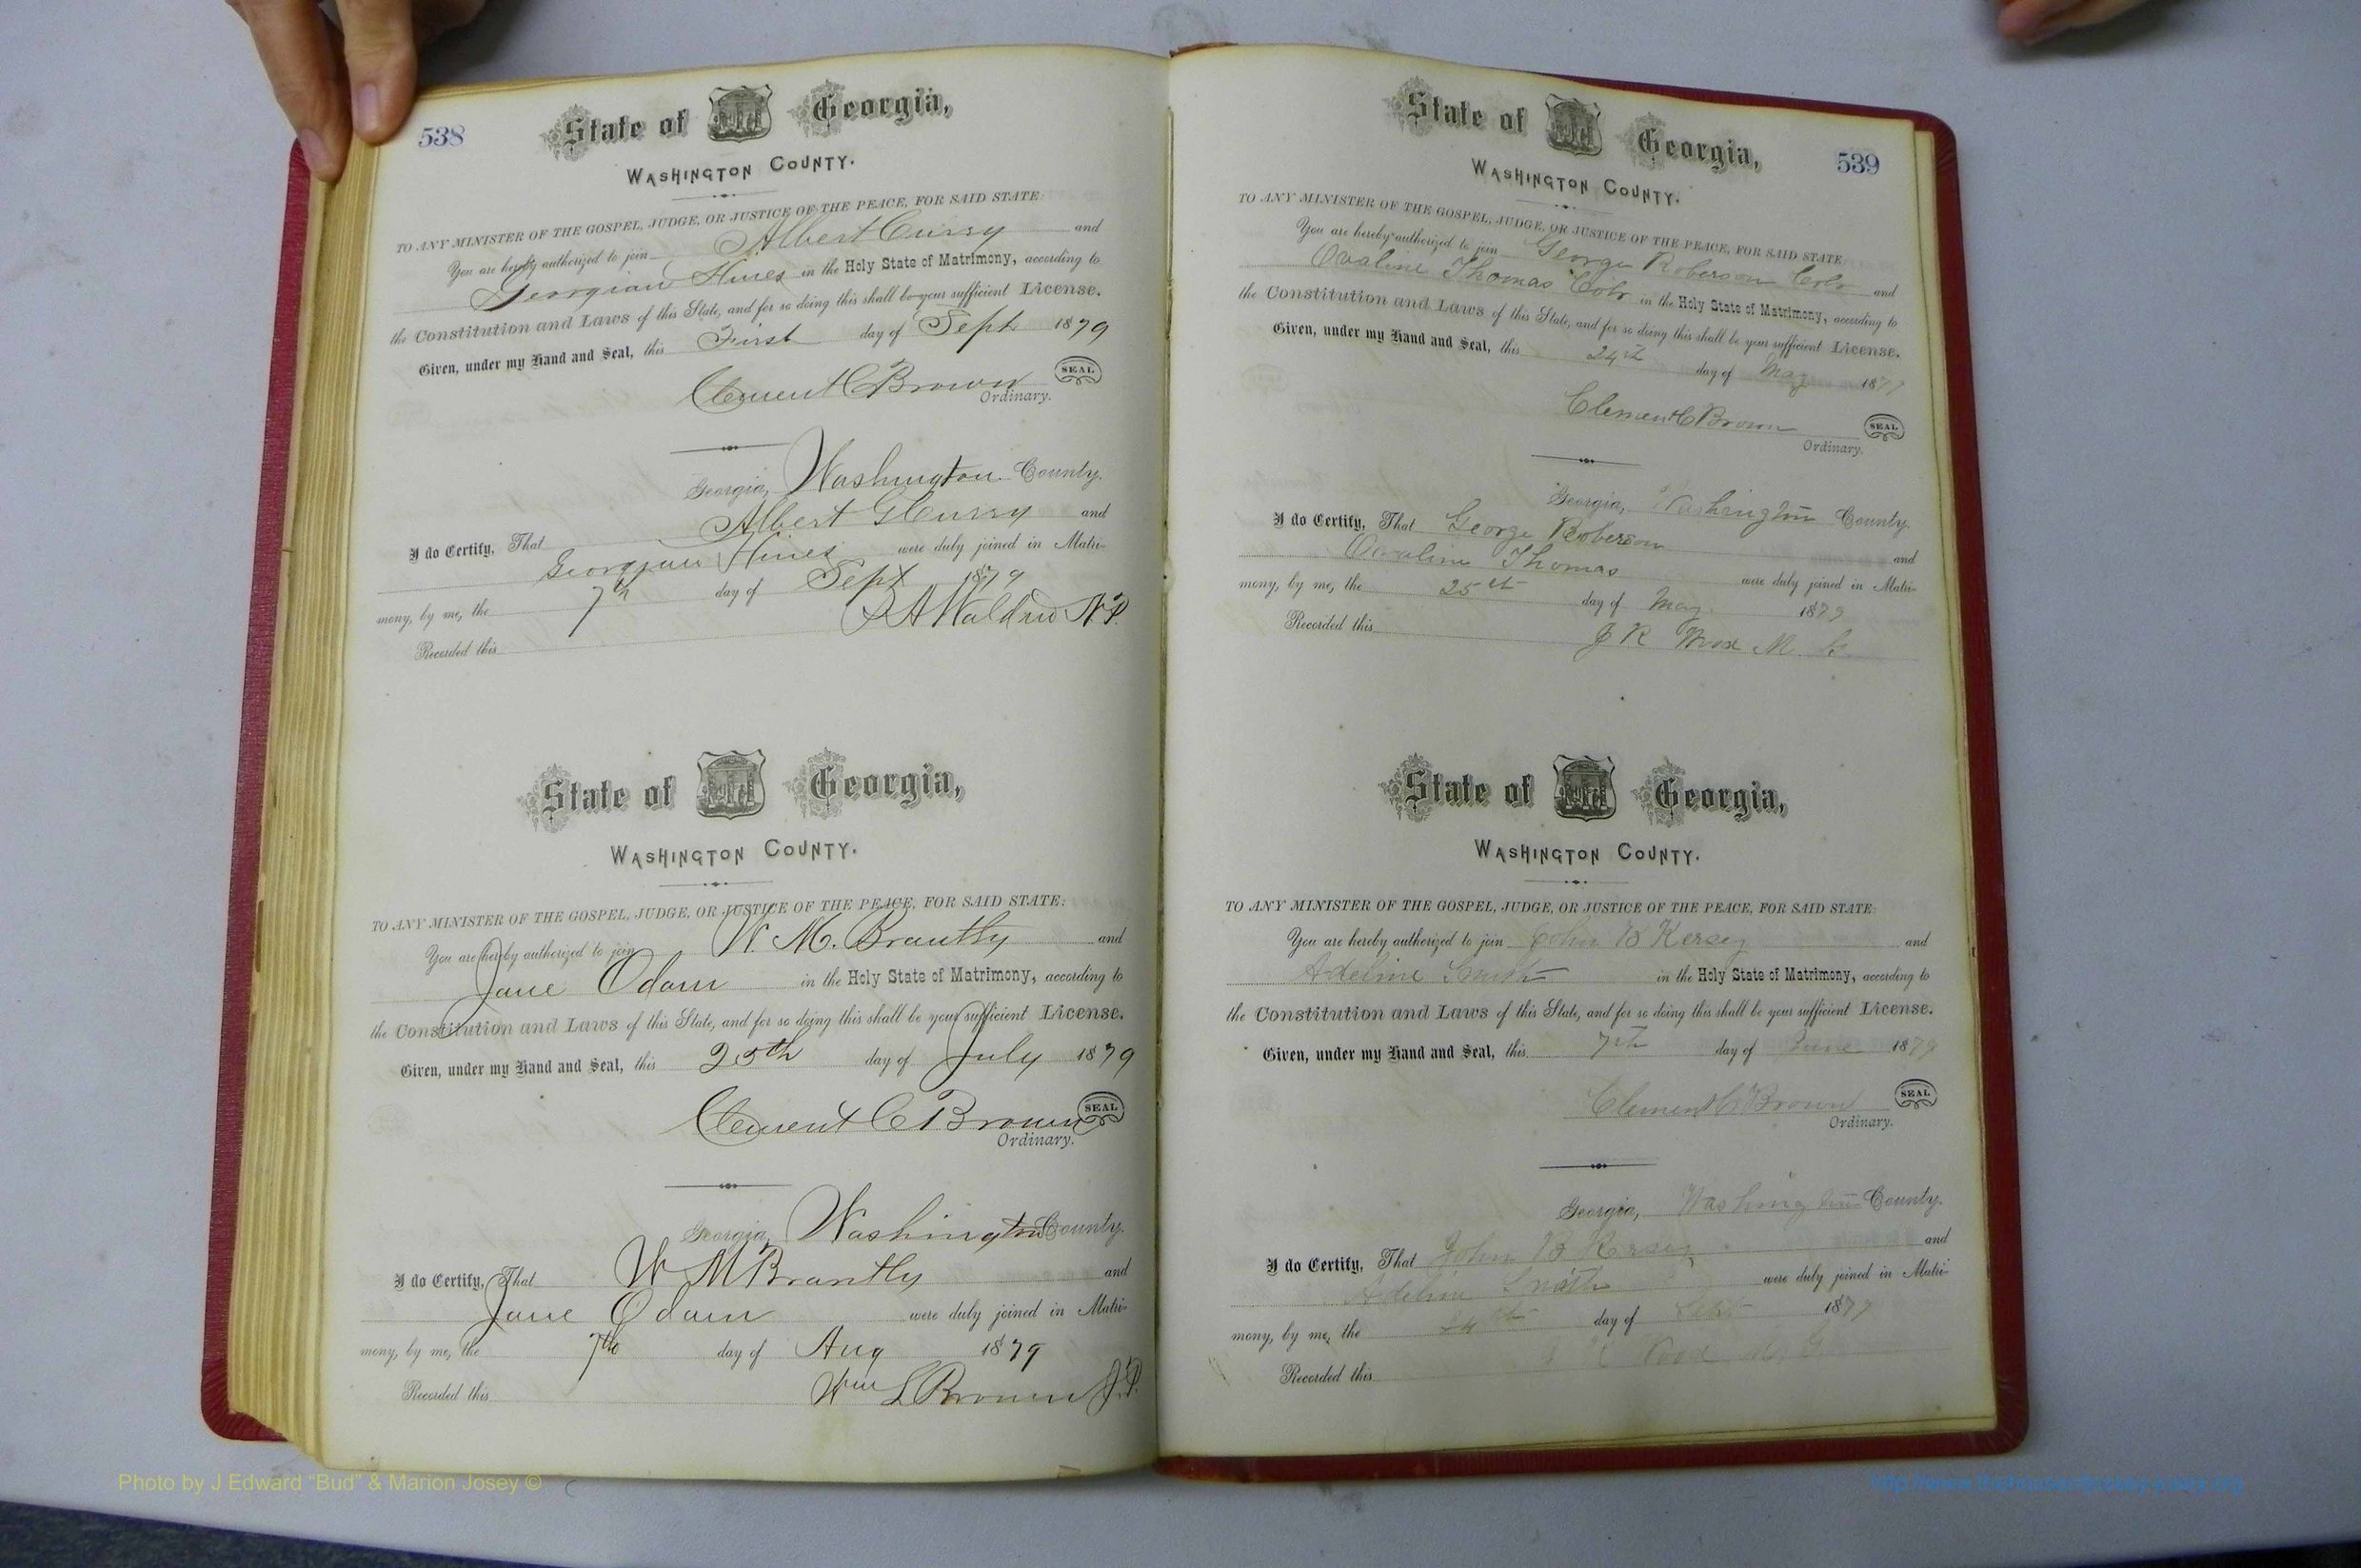 538
State of Georgia,
WASHINGTON COUNTY.
TO ANY MINISTER OF THE GOSPEL, JUDGE, OR JUSTICE OF THE PEACE, FOR SAID STATE:
You are hereby authorized to join Albert Curry and
Georgian Hines in the Holy State of Matrimony, according to
the Constitution and Laws of this State, and for so doing this shall be your sufficient License.
Given, under my Hand and Seal, this First day of Sept 1879
Clement C Brown SEAL
Ordinary.
Georgia, Washington County.
I do Certify, That Albert G Curry and
Georgian Hines were duly joined in Matri-
mony, by me, the 7th day of Sept 1879
Recorded this N.P.
State of Georgia,
WASHINGTON COUNTY.
TO ANY MINISTER OF THE GOSPEL, JUDGE, OR JUSTICE OF THE PEACE, FOR SAID STATE:
You are hereby authorized to join W. M. Brantly and
Jane Odom in the Holy State of Matrimony, according to
the Constitution and Laws of this State, and for so doing this shall be your sufficient License.
Given, under my Hand and Seal, this 25th day of July 1879
Clement C Brown SEAL
Ordinary.
Georgia, Washington County.
I do Certify, That W M Brantly and
Jane Odom were duly joined in Matri-
mony, by me, the 7th day of Aug 1879
Recorded this Wm L Brown J.P.
539
State of Georgia,
WASHINGTON COUNTY.
TO ANY MINISTER OF THE GOSPEL, JUDGE, OR JUSTICE OF THE PEACE, FOR SAID STATE:
You are hereby authorized to join George Roberson Cold and
Ovaline Thomas Cold in the Holy State of Matrimony, according to
the Constitution and Laws of this State, and for so doing this shall be your sufficient License.
Given, under my Hand and Seal, this 24th day of May 1879
Clement C Brown SEAL
Ordinary.
Georgia, Washington County.
I do Certify, That George Roberson and
Ovaline Thomas were duly joined in Matri-
mony, by me, the 25th day of May 1879
Recorded this J R Wood M. G.
State of Georgia,
WASHINGTON COUNTY.
TO ANY MINISTER OF THE GOSPEL, JUDGE, OR JUSTICE OF THE PEACE, FOR SAID STATE:
You are hereby authorized to join John B Kersey and
Adeline Smith in the Holy State of Matrimony, according to
the Constitution and Laws of this State, and for so doing this shall be your sufficient License.
Given, under my Hand and Seal, this 7th day of June 1879
Clement C Brown SEAL
Ordinary.
Georgia, Washington County.
I do Certify, That John B Kersey and
Adeline Smith were duly joined in Matri-
mony, by me, the day of 1879
Recorded this Wood
Photo by J Edward "Bud" & Marion Josey ©